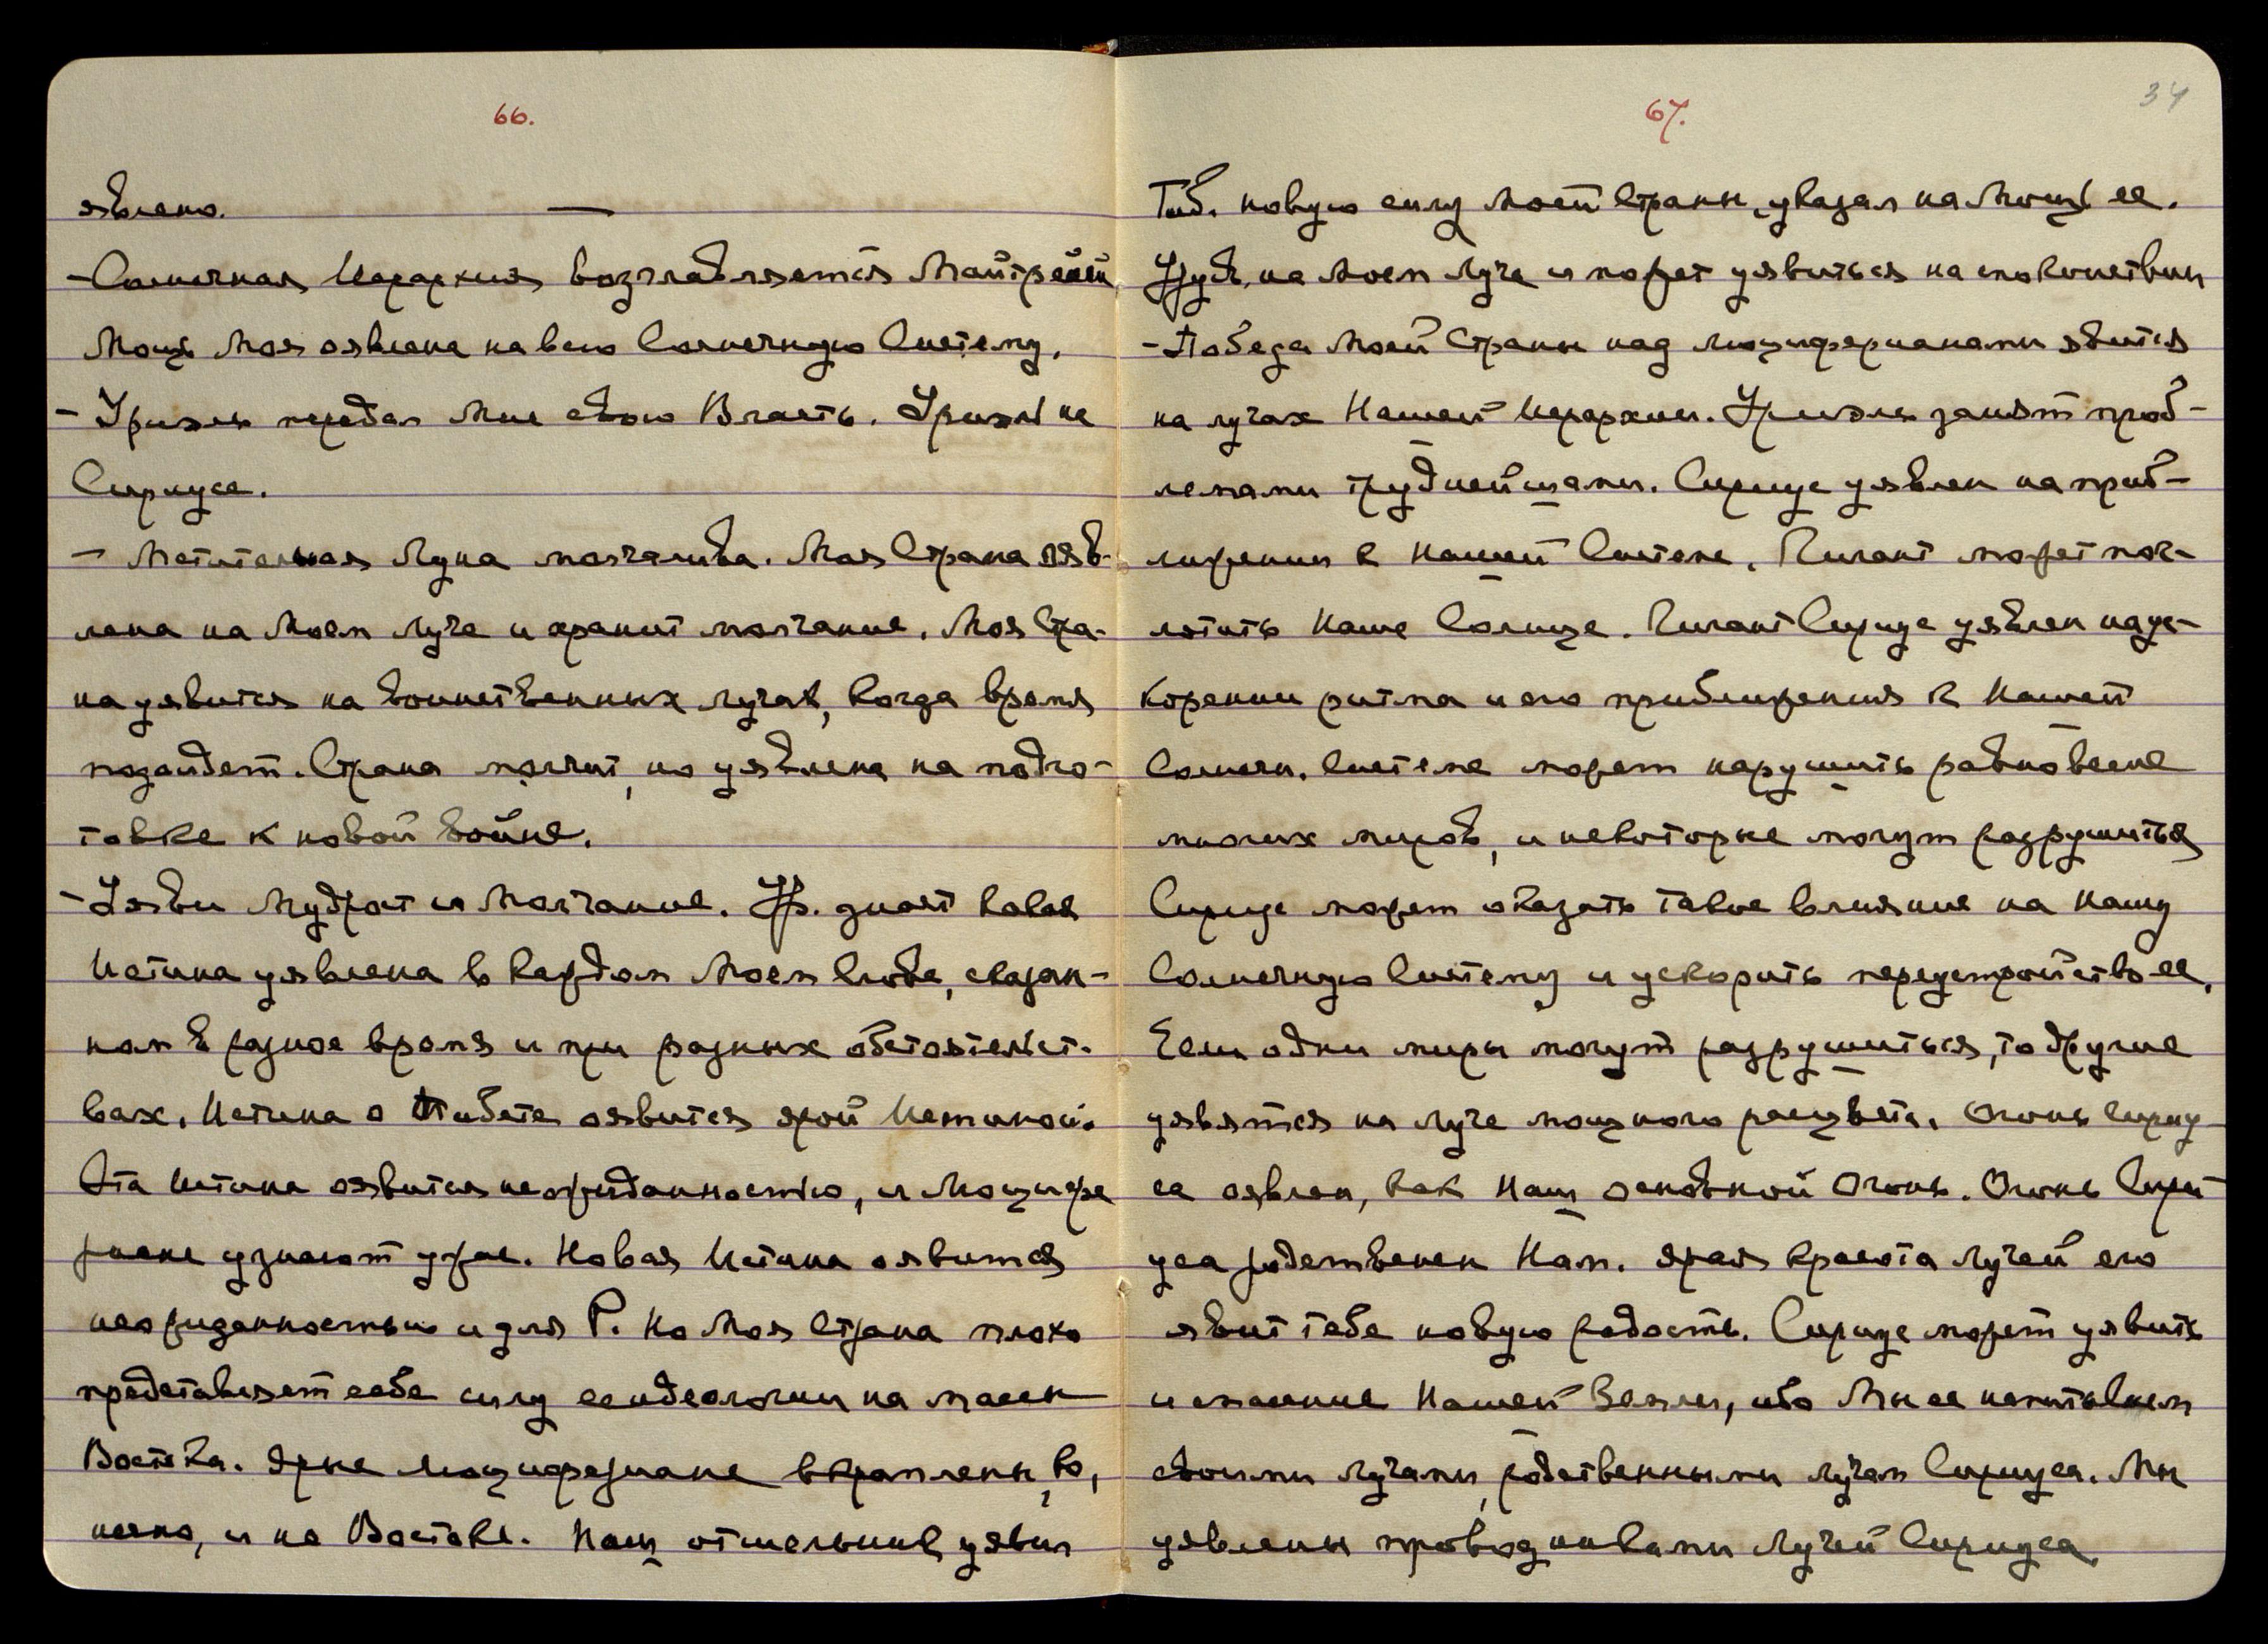 66.
явлено. —
- Солнечная Иерархия возглавляется Майтрейей
Мощь Моя оявлена на всю Солнечную Систему.
- Уриэль передал Мне свою Власть. Уриэль на
Сириусе.
- Мстительная Луна молчалива. Моя Страна уяв-
лена на Моем Луче и хранит молчание. Моя Стра-
на уявится на воинственных лучах, когда время
подойдет. Страна молчит, но уявлена на подго-
товке к новой войне.
- Уяви Мудрость и Молчание. Ур. знает какая
Истина уявлена в каждом Моем Слове, сказан-
ном в разное время и при разных обстоятельст-
вах. Истина о Тибете оявится ярой Истиной.
Эта Истина оявится неожиданностью, и Люцифе
риане узнают ужас. Новая Истина оявится
неожиданностью и для Р. Но Моя Страна плохо
представляет себе силу ее идеологии на массы
Востока. Ярые люцифериане вкраплены, ко,
нечно, и на Востоке. Наш отшельник уявил
67.
34
Тиб. новую силу Моей Страны, указал на Мощь ее.
Ур. на Моем Луче и может уявиться на спокойствии
- Победа Моей Страны над люциферианами явится
на лучах Нашей Иерархии. Уриэль занят проб-
лемами труднейшими. Сириус уявлен на приб-
лижении к Нашей Системе. Гигант может пог-
лотить Наше Солнце. Гигант Сириус уявлен на ус-
корении ритма и его приближения к Нашей
Солнечн. Системе может нарушить равновесие
многих миров, и некоторые могут разрушиться
Сириус может оказать такое влияние на Нашу
Солнечную Систему и ускорить переустройство ее.
Если одни миры могут разрушиться, то другие
уявятся на луче мощного расцвета. Огонь Сириу
са оявлен, как Наш основной Огонь. Огонь Сири
уса родственен Нам. Ярая красота Лучей его
явит тебе новую радость. Сириус может уявить
и спасение Нашей Земли, ибо Мы ее напитываем
своими Лучами, родственными лучам Сириуса. Мы
уявлены проводниками Лучей Сириуса